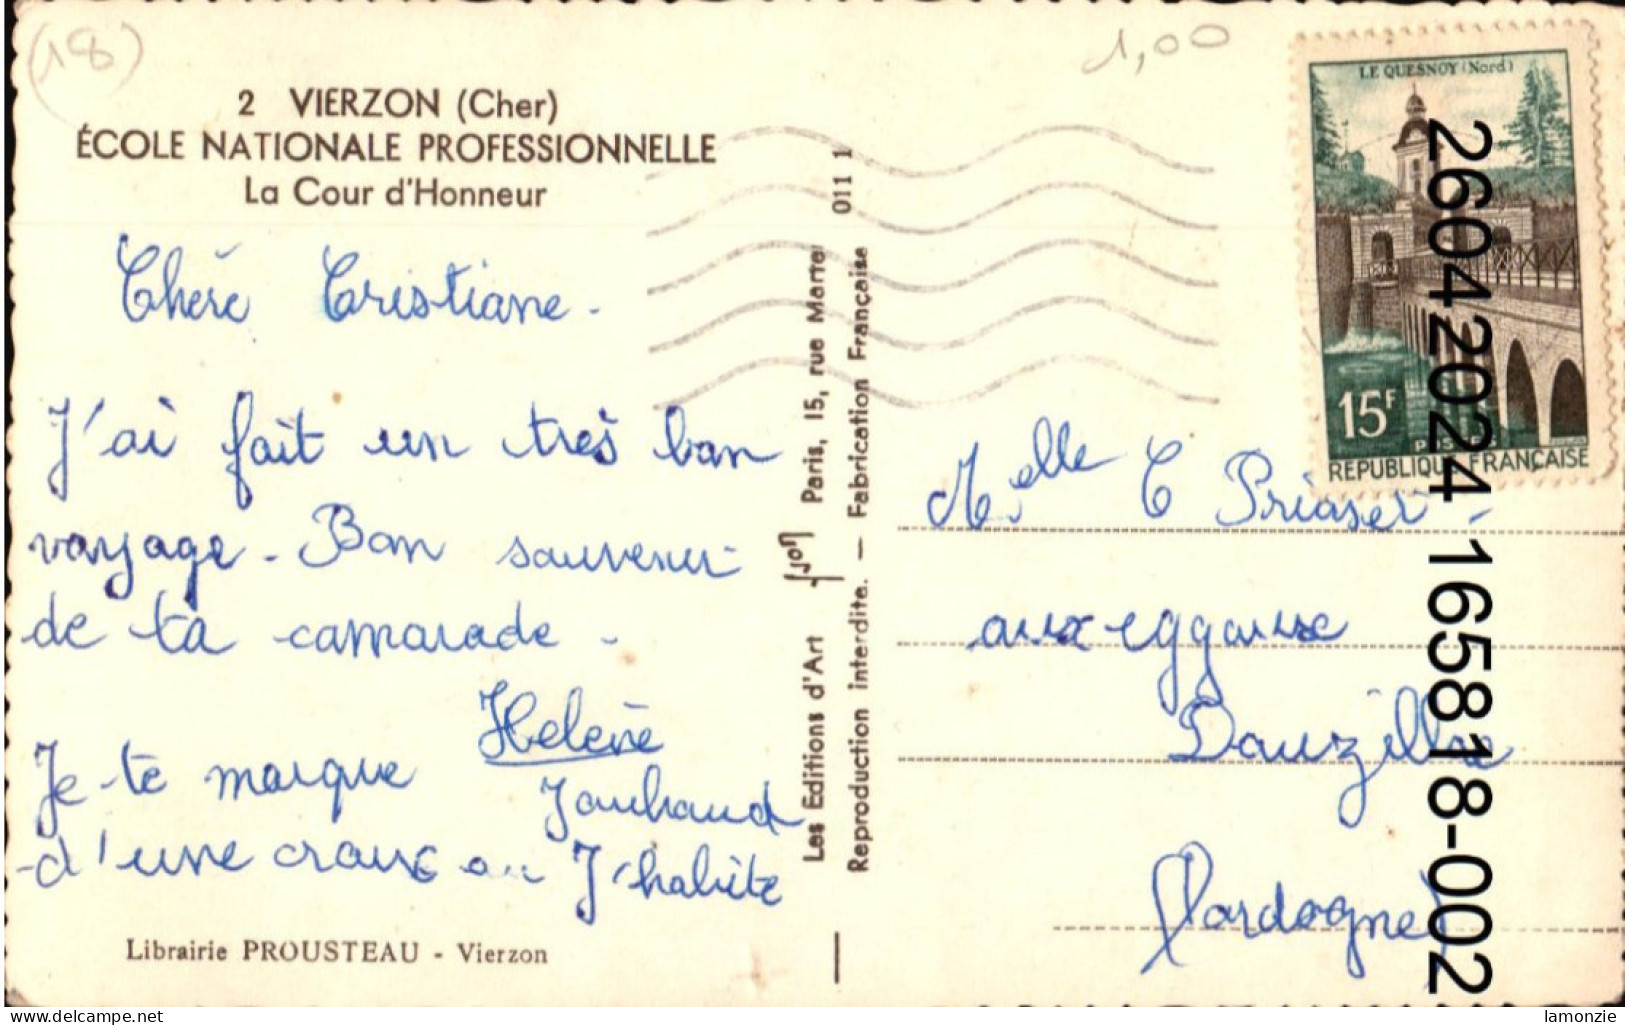 (18)
1,00
2 VIERZON (Cher)
ÉCOLE NATIONALE PROFESSIONNELLE
La Cour d'Honneur
Chère Cristiane.
J'ai fait un très bon
voyage. Bon souvenir
de ta camarade.
Helène
Jouhaud
Je te marque
d'une croix ou J'habite
Librairie PROUSTEAU - Vierzon
Les Editions d'Art Yvon Paris, 15, rue Martel
Reproduction interdite. — Fabrication Française
011 1
LE QUESNOY (Nord)
15F
REPUBLIQUE FRANÇAISE
Melle C
aux eygauxe
Douzillac
(Dordogne)
26042024 165818-002
lamonzie.delcampe.net